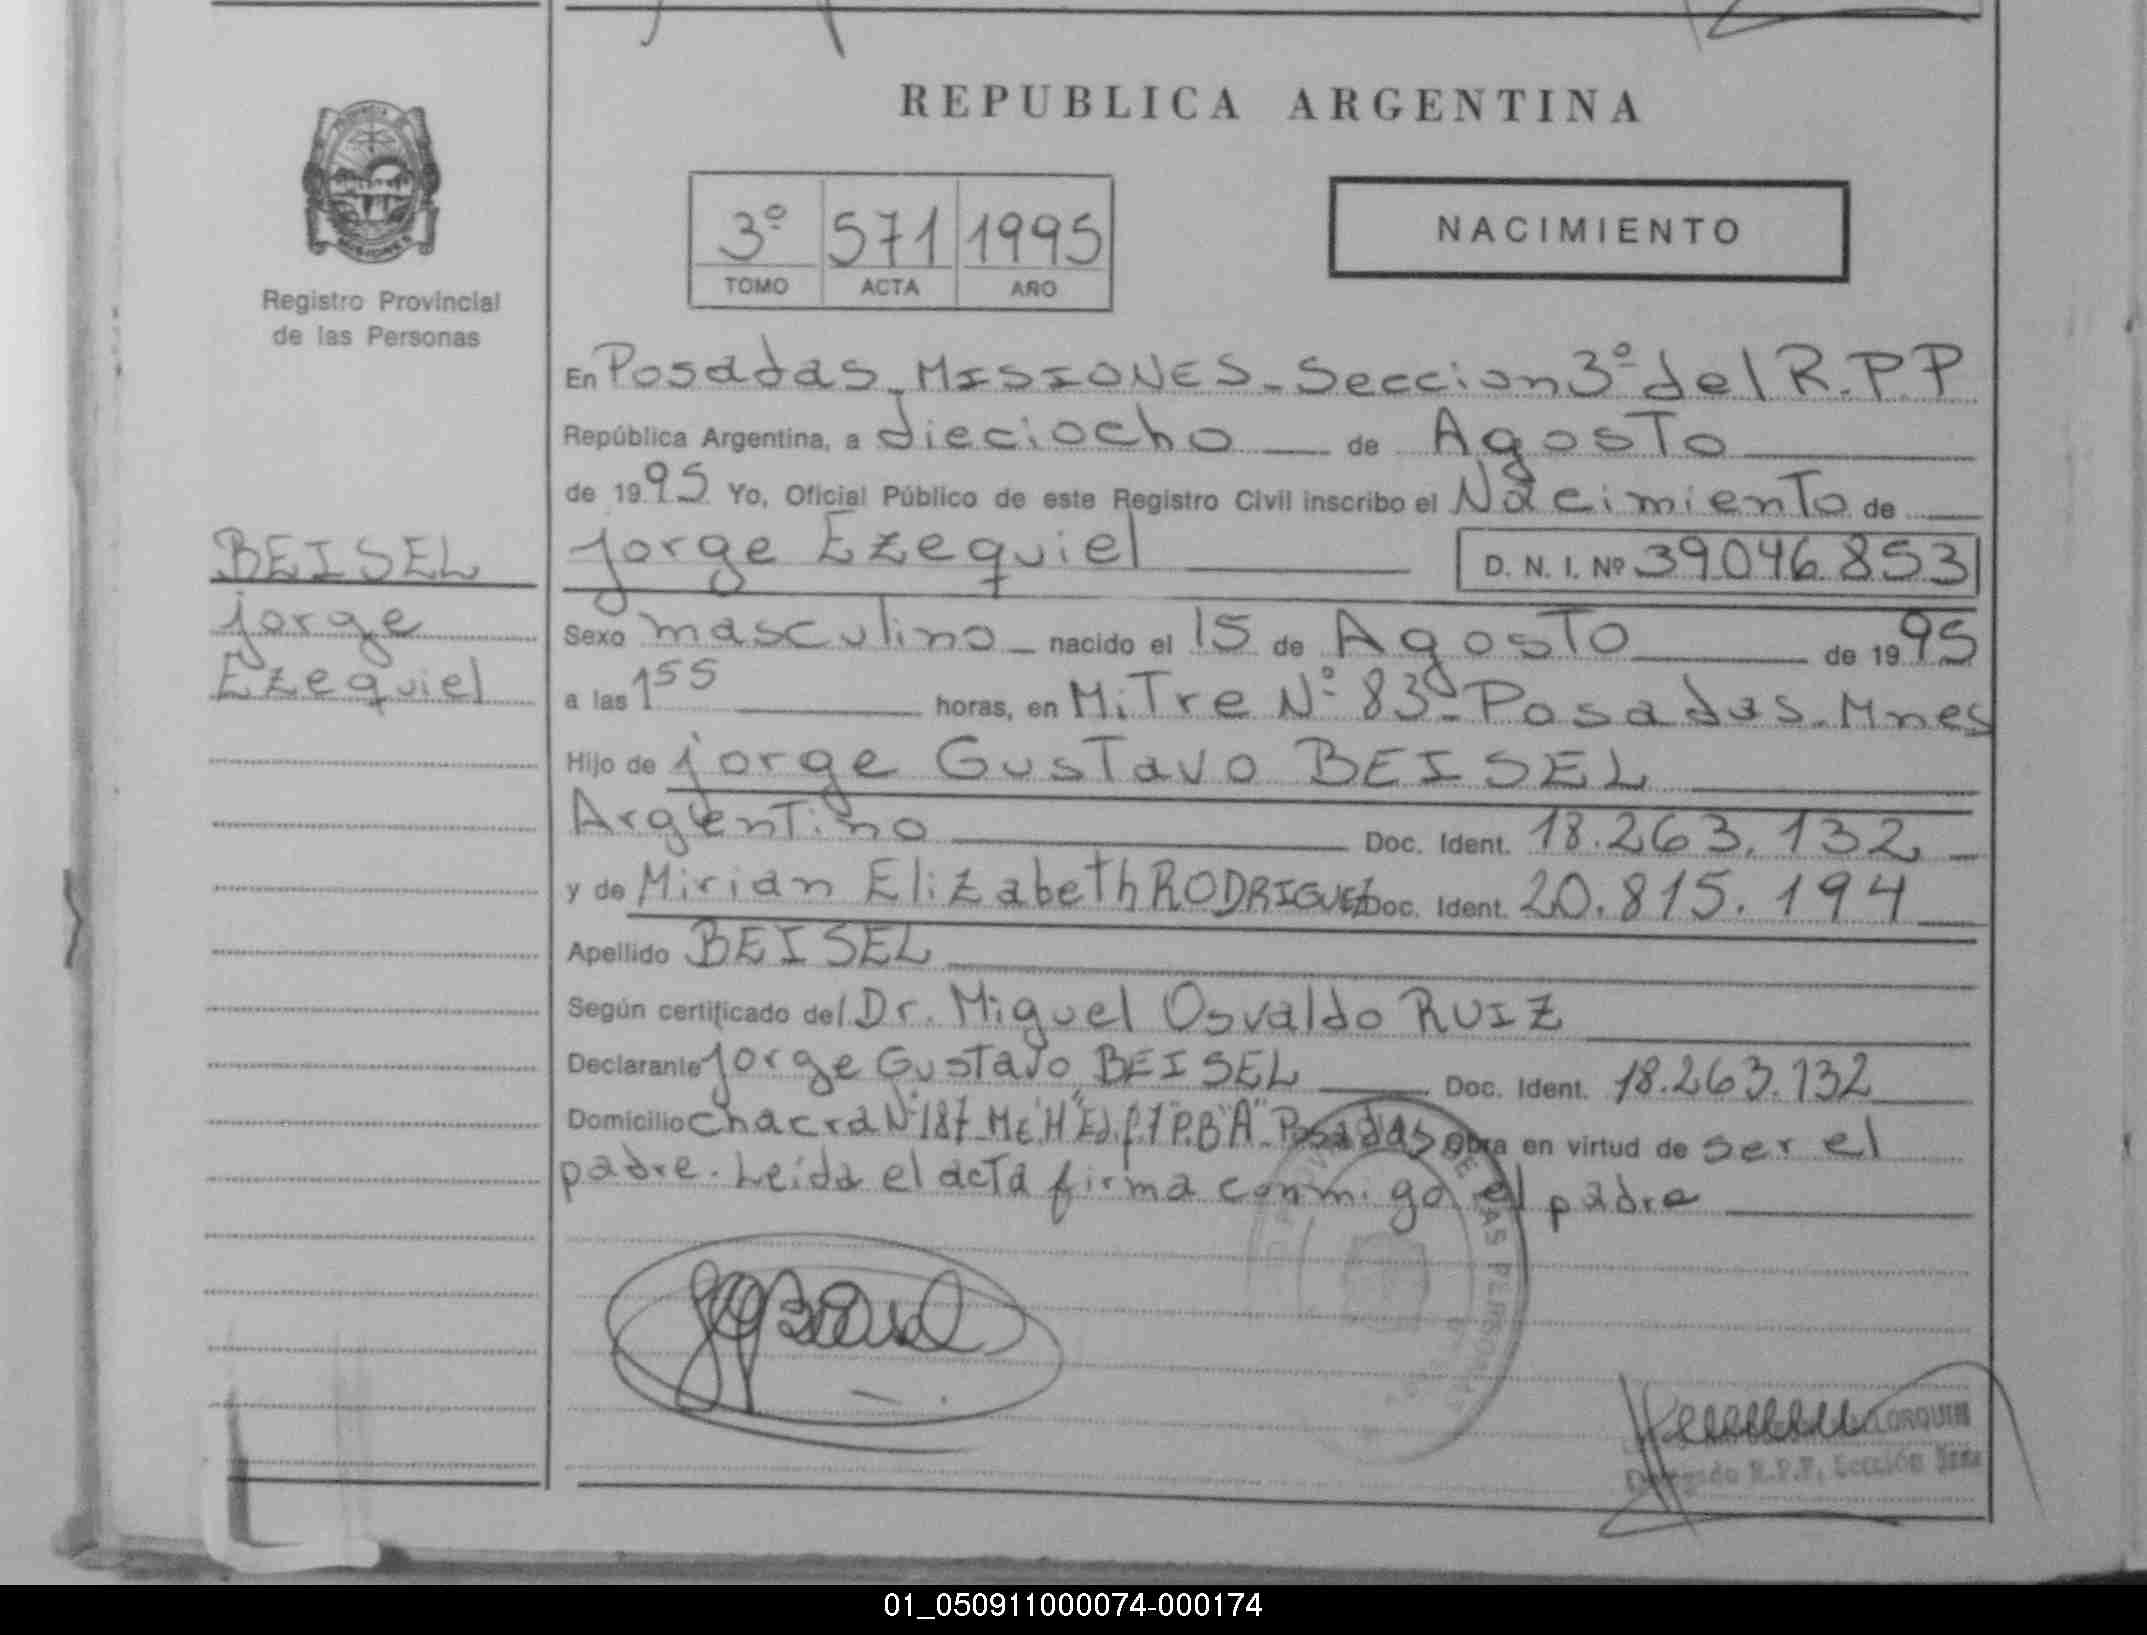 REPUBLICA ARGENTINA
Registro Provincial
de las Personas
3º 571 1995
TOMO ACTA AÑO
NACIMIENTO
En Posadas - MISIONES - Seccion 3º del R.P.P
República Argentina, a dieciocho de Agosto
de 1995 Yo, Oficial Público de este Registro Civil inscribo el Nacimiento de
BEISEL
Jorge
Ezequiel
Jorge Ezequiel D. N. I. Nº 39046853
Sexo masculino nacido el 15 de Agosto de 1995
a las 1 55 horas, en Mitre Nº 83 - Posadas - Mnes
Hijo de Jorge Gustavo BEISEL
Argentino Doc. Ident. 18.263.132
y de Mirian Elizabeth RODRIGUEZ Doc. Ident. 20.815.194
Apellido BEISEL
Según certificado del Dr. Miguel Osvaldo RUIZ
Declarante Jorge Gustavo BEISEL Doc. Ident. 18.263.132
Domicilio chacra Nº 187 Posadas Obra en virtud de ser el
padre. Leida el acta firma conmigo el padre
LORQUIN
R.P.P. Sección
01_050911000074-000174